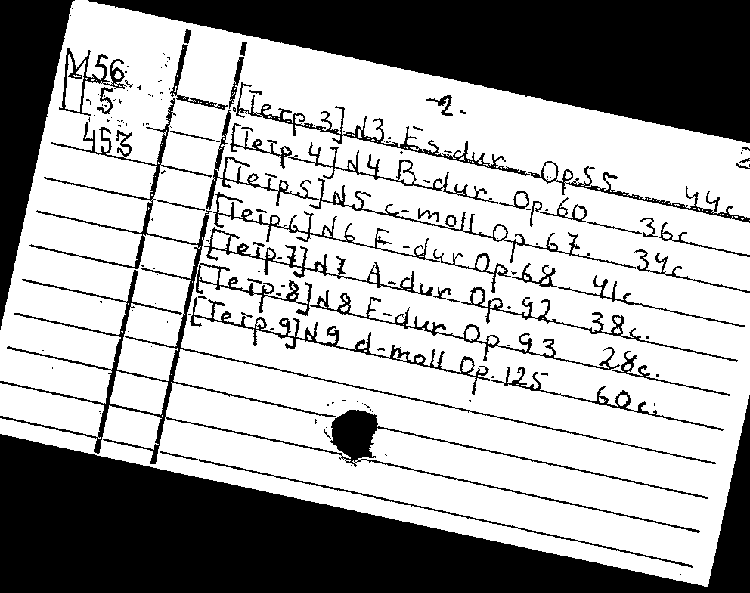 М56
П5
453
-2-
2
[Тетр.3] N3. Es-dur Op.55 44с.
[Тетр.4] N4 B-dur. Op.60 36с.
[Тетр.5] N5 c-moll. Op.67. 34с.
[Тетр.6] N6 F-dur Op.68 41с.
[Тетр.7] N7 A-dur Op.92. 38с.
[Тетр.8] N8 F-dur Op.93 28с.
[Тетр.9] N9 d-moll Op.125 60с.